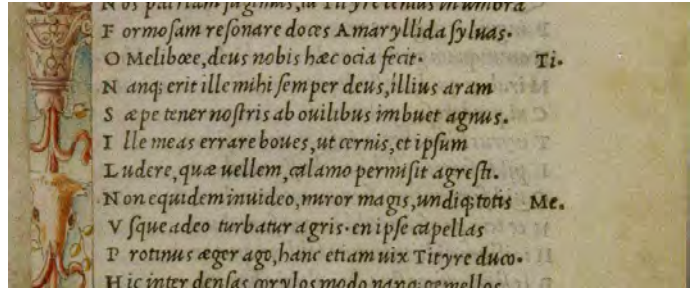 N os patriam fugimus, tu Tityre lentus in umbra
F ormosam resonare doces Amaryllida syluas.
O Meliboee, deus nobis hæc ocia fecit. Ti.
N anq; erit ille mihi semper deus, illius aram
S æpe tener nostris ab ouilibus imbuet agnus.
I lle meas errare boues, ut cernis, et ipsum
L udere, quæ uellem, calamo permisit agresti.
N on equidem inuideo, miror magis, undiq; totis Me.
V sque adeo turbatur agris. en ipse capellas
P rotinus æger ago, hanc etiam uix Tityre duco.
H ic inter densas corylos modo nanq; gemellos